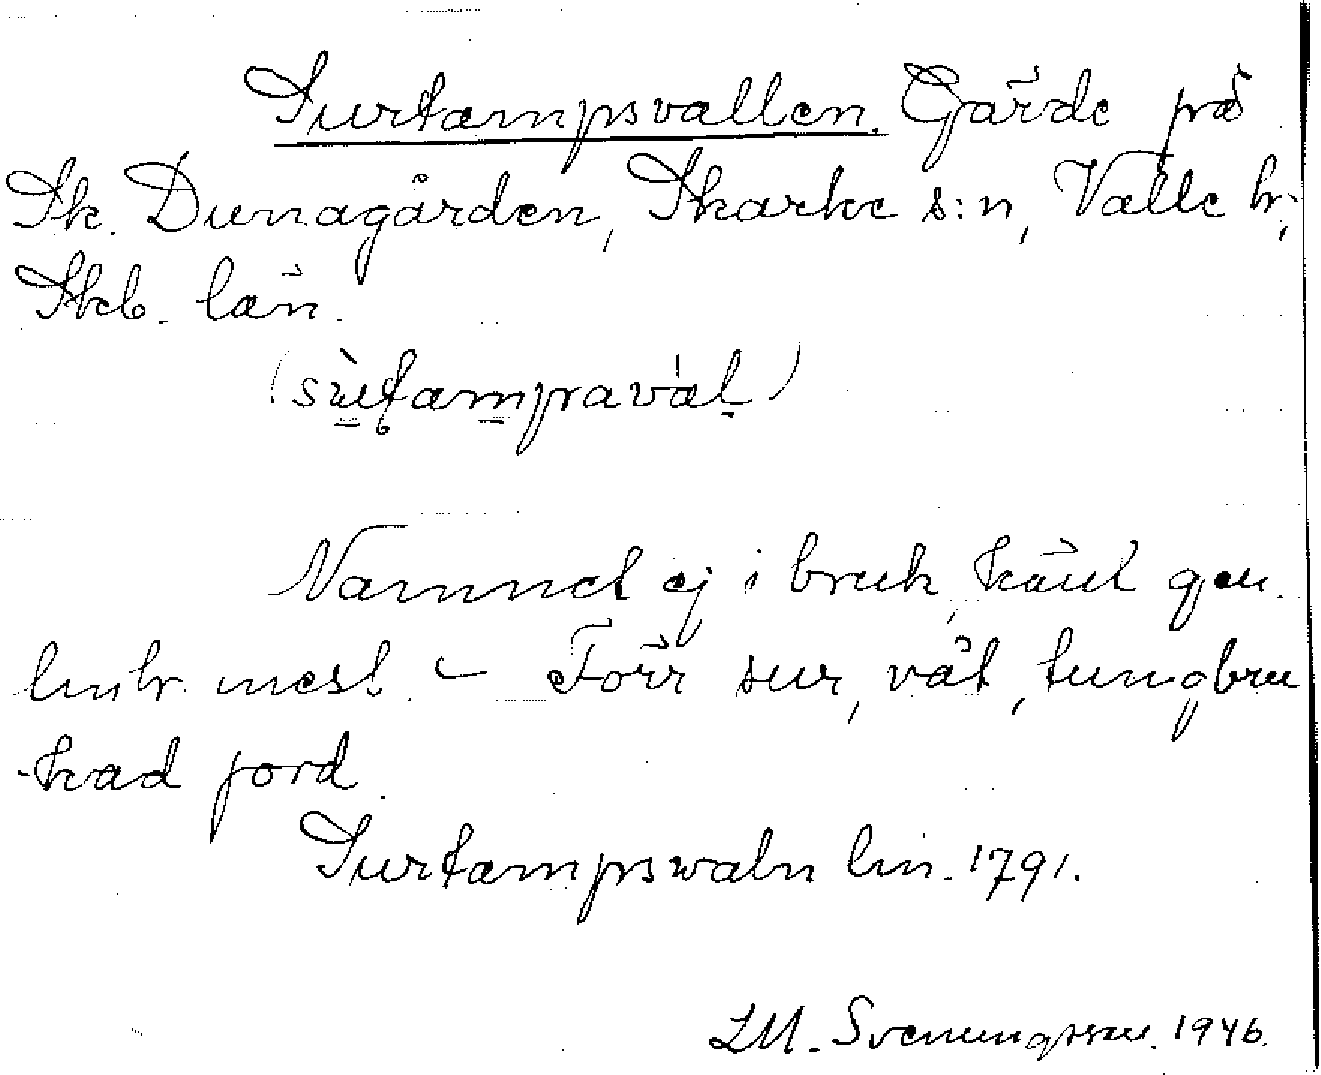 Surtampsvallen. Gärde på
Sk. Dunagården, Skarke s:n, Valle hr,
Skb. län.
(sùtampravál)
Namnet ej i bruk, känt gen.
lm hr mest. – Förr sur, våt, tungbru
kad jord.
Surtampswaln lm. 1791.
LM. Svenungsson. 1946.